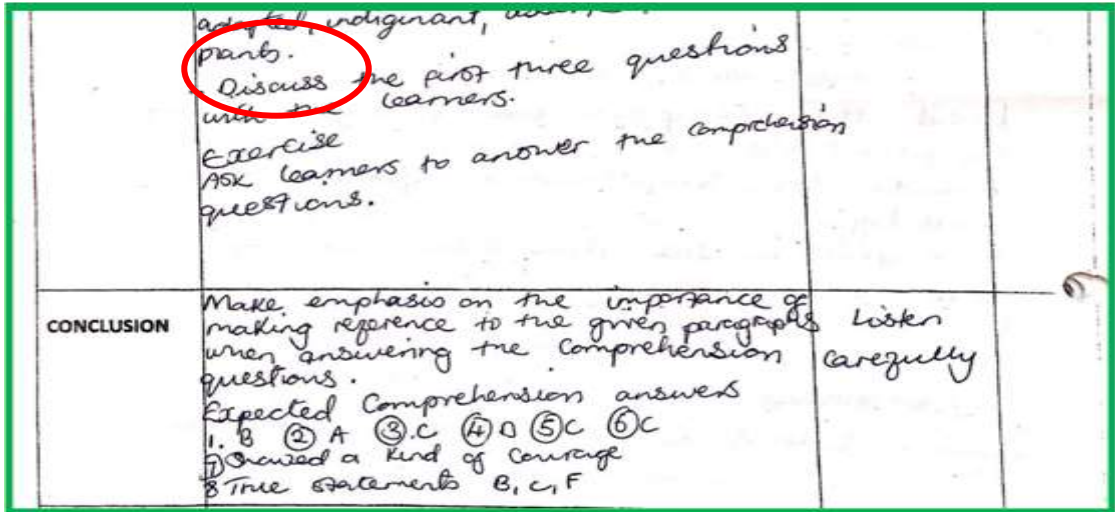 adapted, indiginant,
plants.
- Discuss the first three questions
with the learners.
Exercise
Ask learners to answer the comprehension
questions.
CONCLUSION
Make emphasis on the importance of
making reference to the given paragraphs
when answering the comprehension
questions.
Expected Comprehension answers
1. B ② A ③.C ④ D ⑤ C ⑥ C
⑦ Showed a kind of courage
8 True statements B, C, F
Listen
carefully